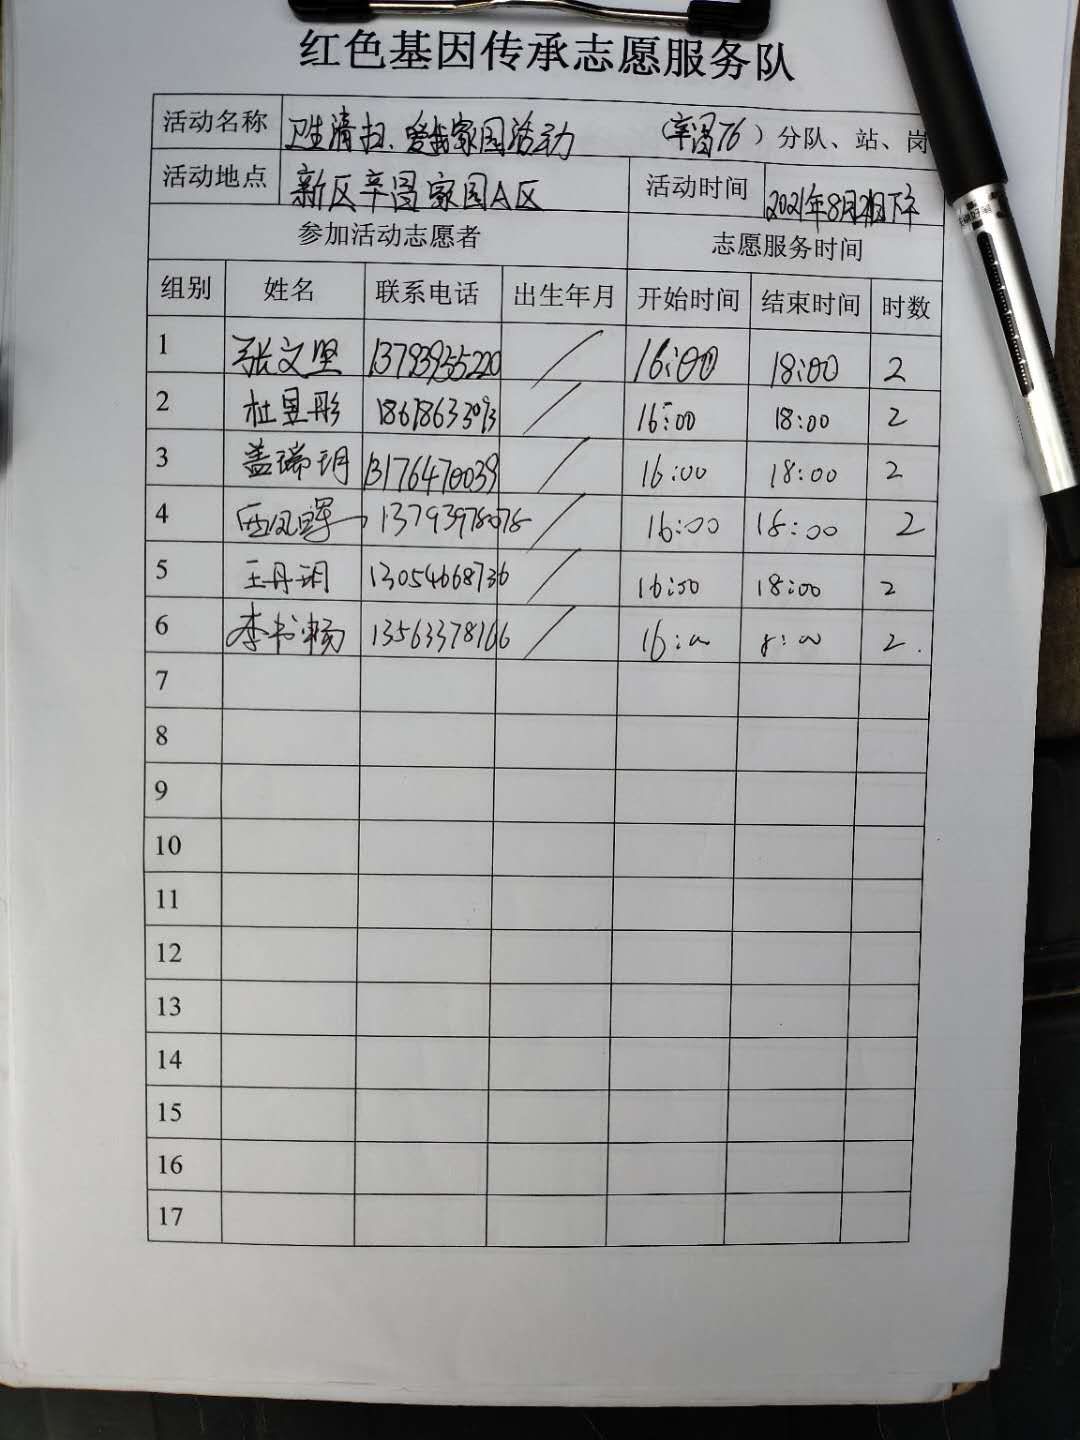 红色基因传承志愿服务队
活动名称 卫生清扫、爱我家园活动 (辛昌76)分队、站、岗
活动地点 新区辛昌家园A区 活动时间 2021年8月 下午
参加活动志愿者 志愿服务时间
组别 姓名 联系电话 出生年月 开始时间 结束时间 时数
1 张文 13793955220 / 16:00 18:00 2
2 杜 彤 18678633093 / 16:00 18:00 2
3 盖瑞玥 13176470039 / 16:00 18:00 2
4 西凤 / 16:00 18:00 2
5 王丹玥 13054668736 / 16:00 18:00 2
6 李书畅 13563378166 / 16:00 8:00 2.
7
8
9
10
11
12
13
14
15
16
17